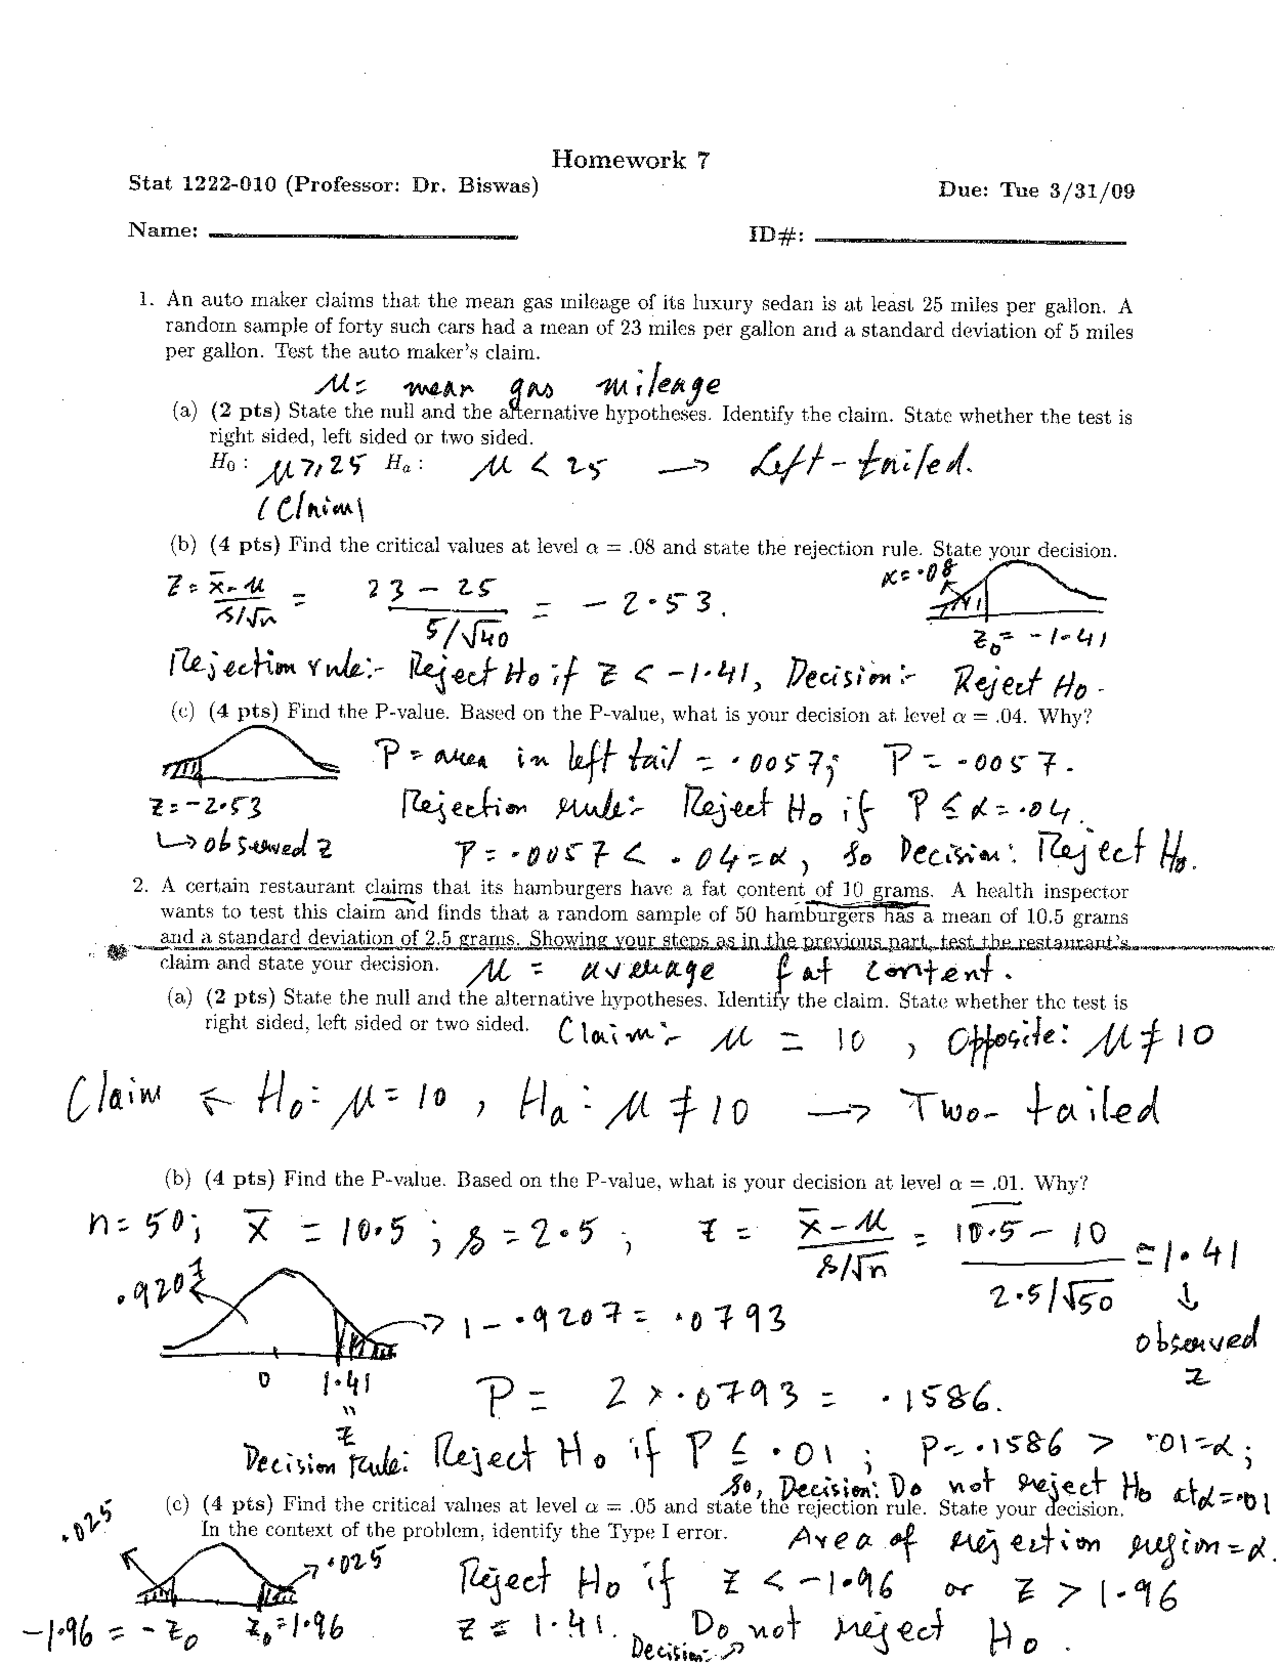 Homework 7
Stat 1222-010 (Professor: Dr. Biswas)
Due: Tue 3/31/09
Name:
ID#:
1. An auto maker claims that the mean gas mileage of its luxury sedan is at least 25 miles per gallon. A
random sample of forty such cars had a mean of 23 miles per gallon and a standard deviation of 5 miles
per gallon. Test the auto maker's claim.
μ = mean gas mileage
(a) (2 pts) State the null and the alternative hypotheses. Identify the claim. State whether the test is
right sided, left sided or two sided.
H₀ : μ ≥ 25 Hₐ : μ < 25 → Left-tailed.
(Claim)
(b) (4 pts) Find the critical values at level α = .08 and state the rejection rule. State your decision.
α = .08
z = (x̄ - μ)/(s/√n) = (23 - 25)/(5/√40) = -2.53.
z₀ = -1.41
Rejection rule:- Reject H₀ if z < -1.41, Decision:- Reject H₀.
(c) (4 pts) Find the P-value. Based on the P-value, what is your decision at level α = .04. Why?
P = area in left tail = .0057; P = .0057.
z = -2.53
Rejection rule:- Reject H₀ if P ≤ α = .04.
↳ observed z
P = .0057 < .04 = α, so Decision: Reject H₀.
2. A certain restaurant claims that its hamburgers have a fat content of 10 grams. A health inspector
wants to test this claim and finds that a random sample of 50 hamburgers has a mean of 10.5 grams
and a standard deviation of 2.5 grams. Showing your steps as in the previous part, test the restaurant's
claim and state your decision. μ = average fat content.
(a) (2 pts) State the null and the alternative hypotheses. Identify the claim. State whether the test is
right sided, left sided or two sided. Claim:- μ = 10, Opposite: μ ≠ 10
Claim ← H₀: μ = 10, Hₐ: μ ≠ 10 → Two-tailed
(b) (4 pts) Find the P-value. Based on the P-value, what is your decision at level α = .01. Why?
n = 50; x̄ = 10.5; s = 2.5; z = (x̄ - μ)/(s/√n) = (10.5 - 10)/(2.5/√50) = 1.41
↓
observed
z
.9207
→ 1 - .9207 = .0793
0 1.41
"
z
P = 2 × .0793 = .1586.
Decision Rule: Reject H₀ if P ≤ .01; P = .1586 > .01 = α;
So, Decision: Do not reject H₀ at α = .01
(c) (4 pts) Find the critical values at level α = .05 and state the rejection rule. State your decision.
In the context of the problem, identify the Type I error. Area of rejection region = α.
.025
.025
Reject H₀ if z < -1.96 or z > 1.96
-1.96 = -z₀ z₀ = 1.96
z = 1.41. Do not reject H₀.
Decision: